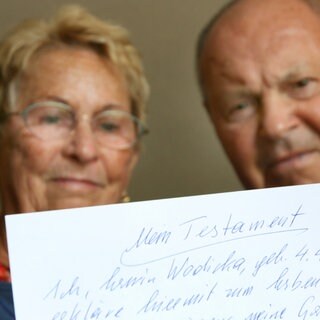 Mein Testament
Ich, Erwin Wodicka, geb. 4.4
erkläre hiermit zum Erben
meine Ga